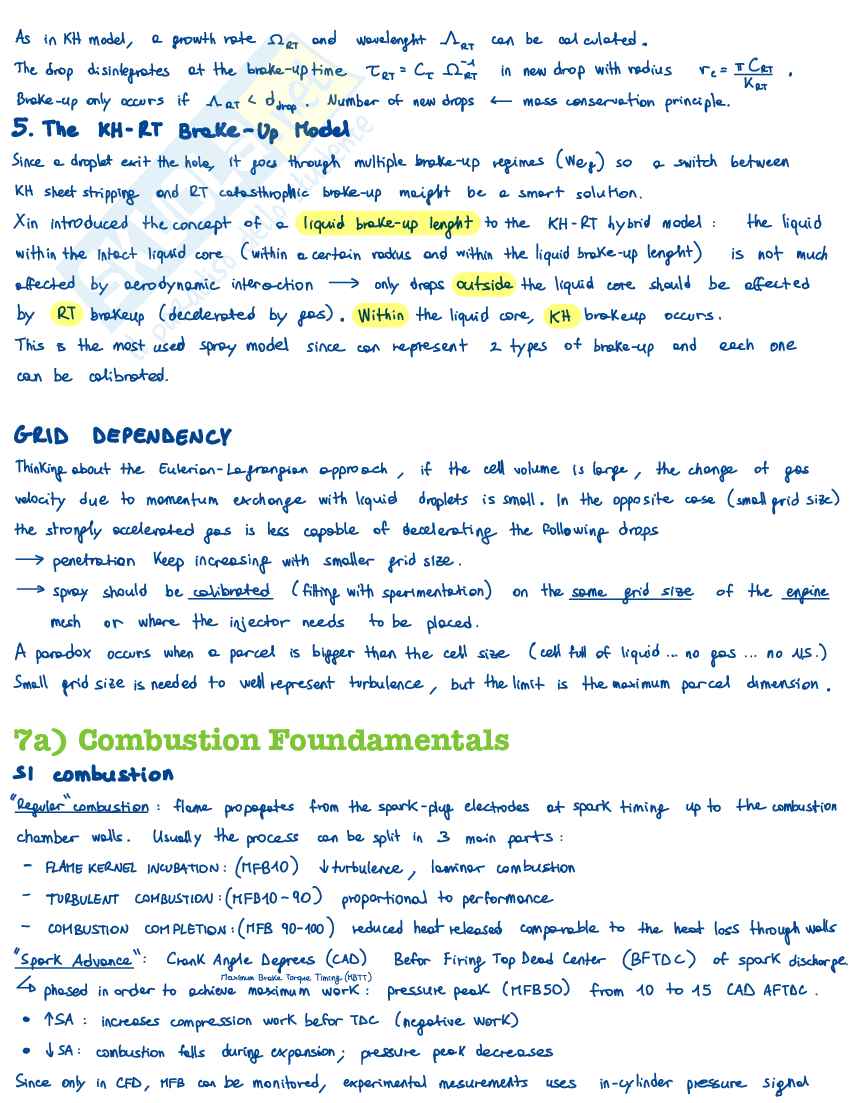 As in KH model, a growth rate Ω_RT and wavelenght Λ_RT can be calculated.
The drop disintegrates at the brake-up time τ_RT = C_τ Ω_RT^-1 in new drop with radius r_c = π C_RT / K_RT .
Brake-up only occurs if Λ_RT < d_drop . Number of new drops ← mass conservation principle.
5. The KH-RT Brake-Up Model
Since a droplet exit the hole, it goes through multiple brake-up regimes (We_g) so a switch between
KH sheet stripping and RT catasthrophic brake-up meight be a smart solution.
Xin introduced the concept of a liquid brake-up lenght to the KH-RT hybrid model : the liquid
within the intact liquid core (within a certain radius and within the liquid brake-up lenght) is not much
affected by aerodynamic interaction → only drops outside the liquid core should be affected
by RT brakeup (decelerated by gas). Within the liquid core, KH brakeup occurs.
This is the most used spray model since can represent 2 types of brake-up and each one
can be calibrated.
GRID DEPENDENCY
Thinking about the Eulerian-Lagrangian approach, if the cell volume is large, the change of gas
velocity due to momentum exchange with liquid droplets is small. In the opposite case (small grid size)
the strongly accelerated gas is less capable of decelerating the following drops
→ penetration keep increasing with smaller grid size.
→ spray should be calibrated (fitting with sperimentation) on the same grid size of the engine
mesh or where the injector needs to be placed.
A paradox occurs when a parcel is bigger than the cell size (cell full of liquid ... no gas ... no N.S.)
Small grid size is needed to well represent turbulence, but the limit is the maximum parcel dimension.
7a) Combustion Foundamentals
SI combustion
"Regular" combustion : flame propagates from the spark-plug electrodes at spark timing up to the combustion
chamber walls. Usually the process can be split in 3 main parts :
- FLAME KERNEL INCUBATION : (MFB10) ↓ turbulence, laminar combustion
- TURBULENT COMBUSTION : (MFB10-90) proportional to performance
- COMBUSTION COMPLETION : (MFB 90-100) reduced heat released comparable to the heat loss through walls
"Spark Advance" : Crank Angle Degrees (CAD) Befor Firing Top Dead Center (BFTDC) of spark discharge
Maximum Brake Torque Timing (MBTT)
↳ phased in order to achieve maximum work : pressure peak (MFB50) from 10 to 15 CAD AFTDC .
• ↑SA : increases compression work befor TDC (negative work)
• ↓SA : combustion falls during expansion; pressure peak decreases
Since only in CFD, MFB can be monitored, experimental mesurements uses in-cylinder pressure signal